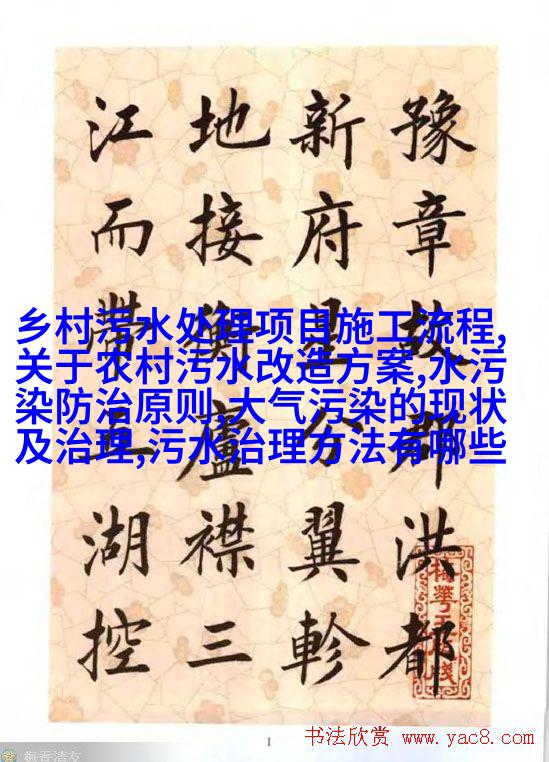 豫章故郡洪都
新府星分翼軫
地接衡廬襟三
江而帶五湖控
乡村污水处理项目施工流程,
关于农村污水改造方案,水污
染防治原则,大气污染的现状
及治理,污水治理方法有哪些
1
书法欣赏 www.yac8.com